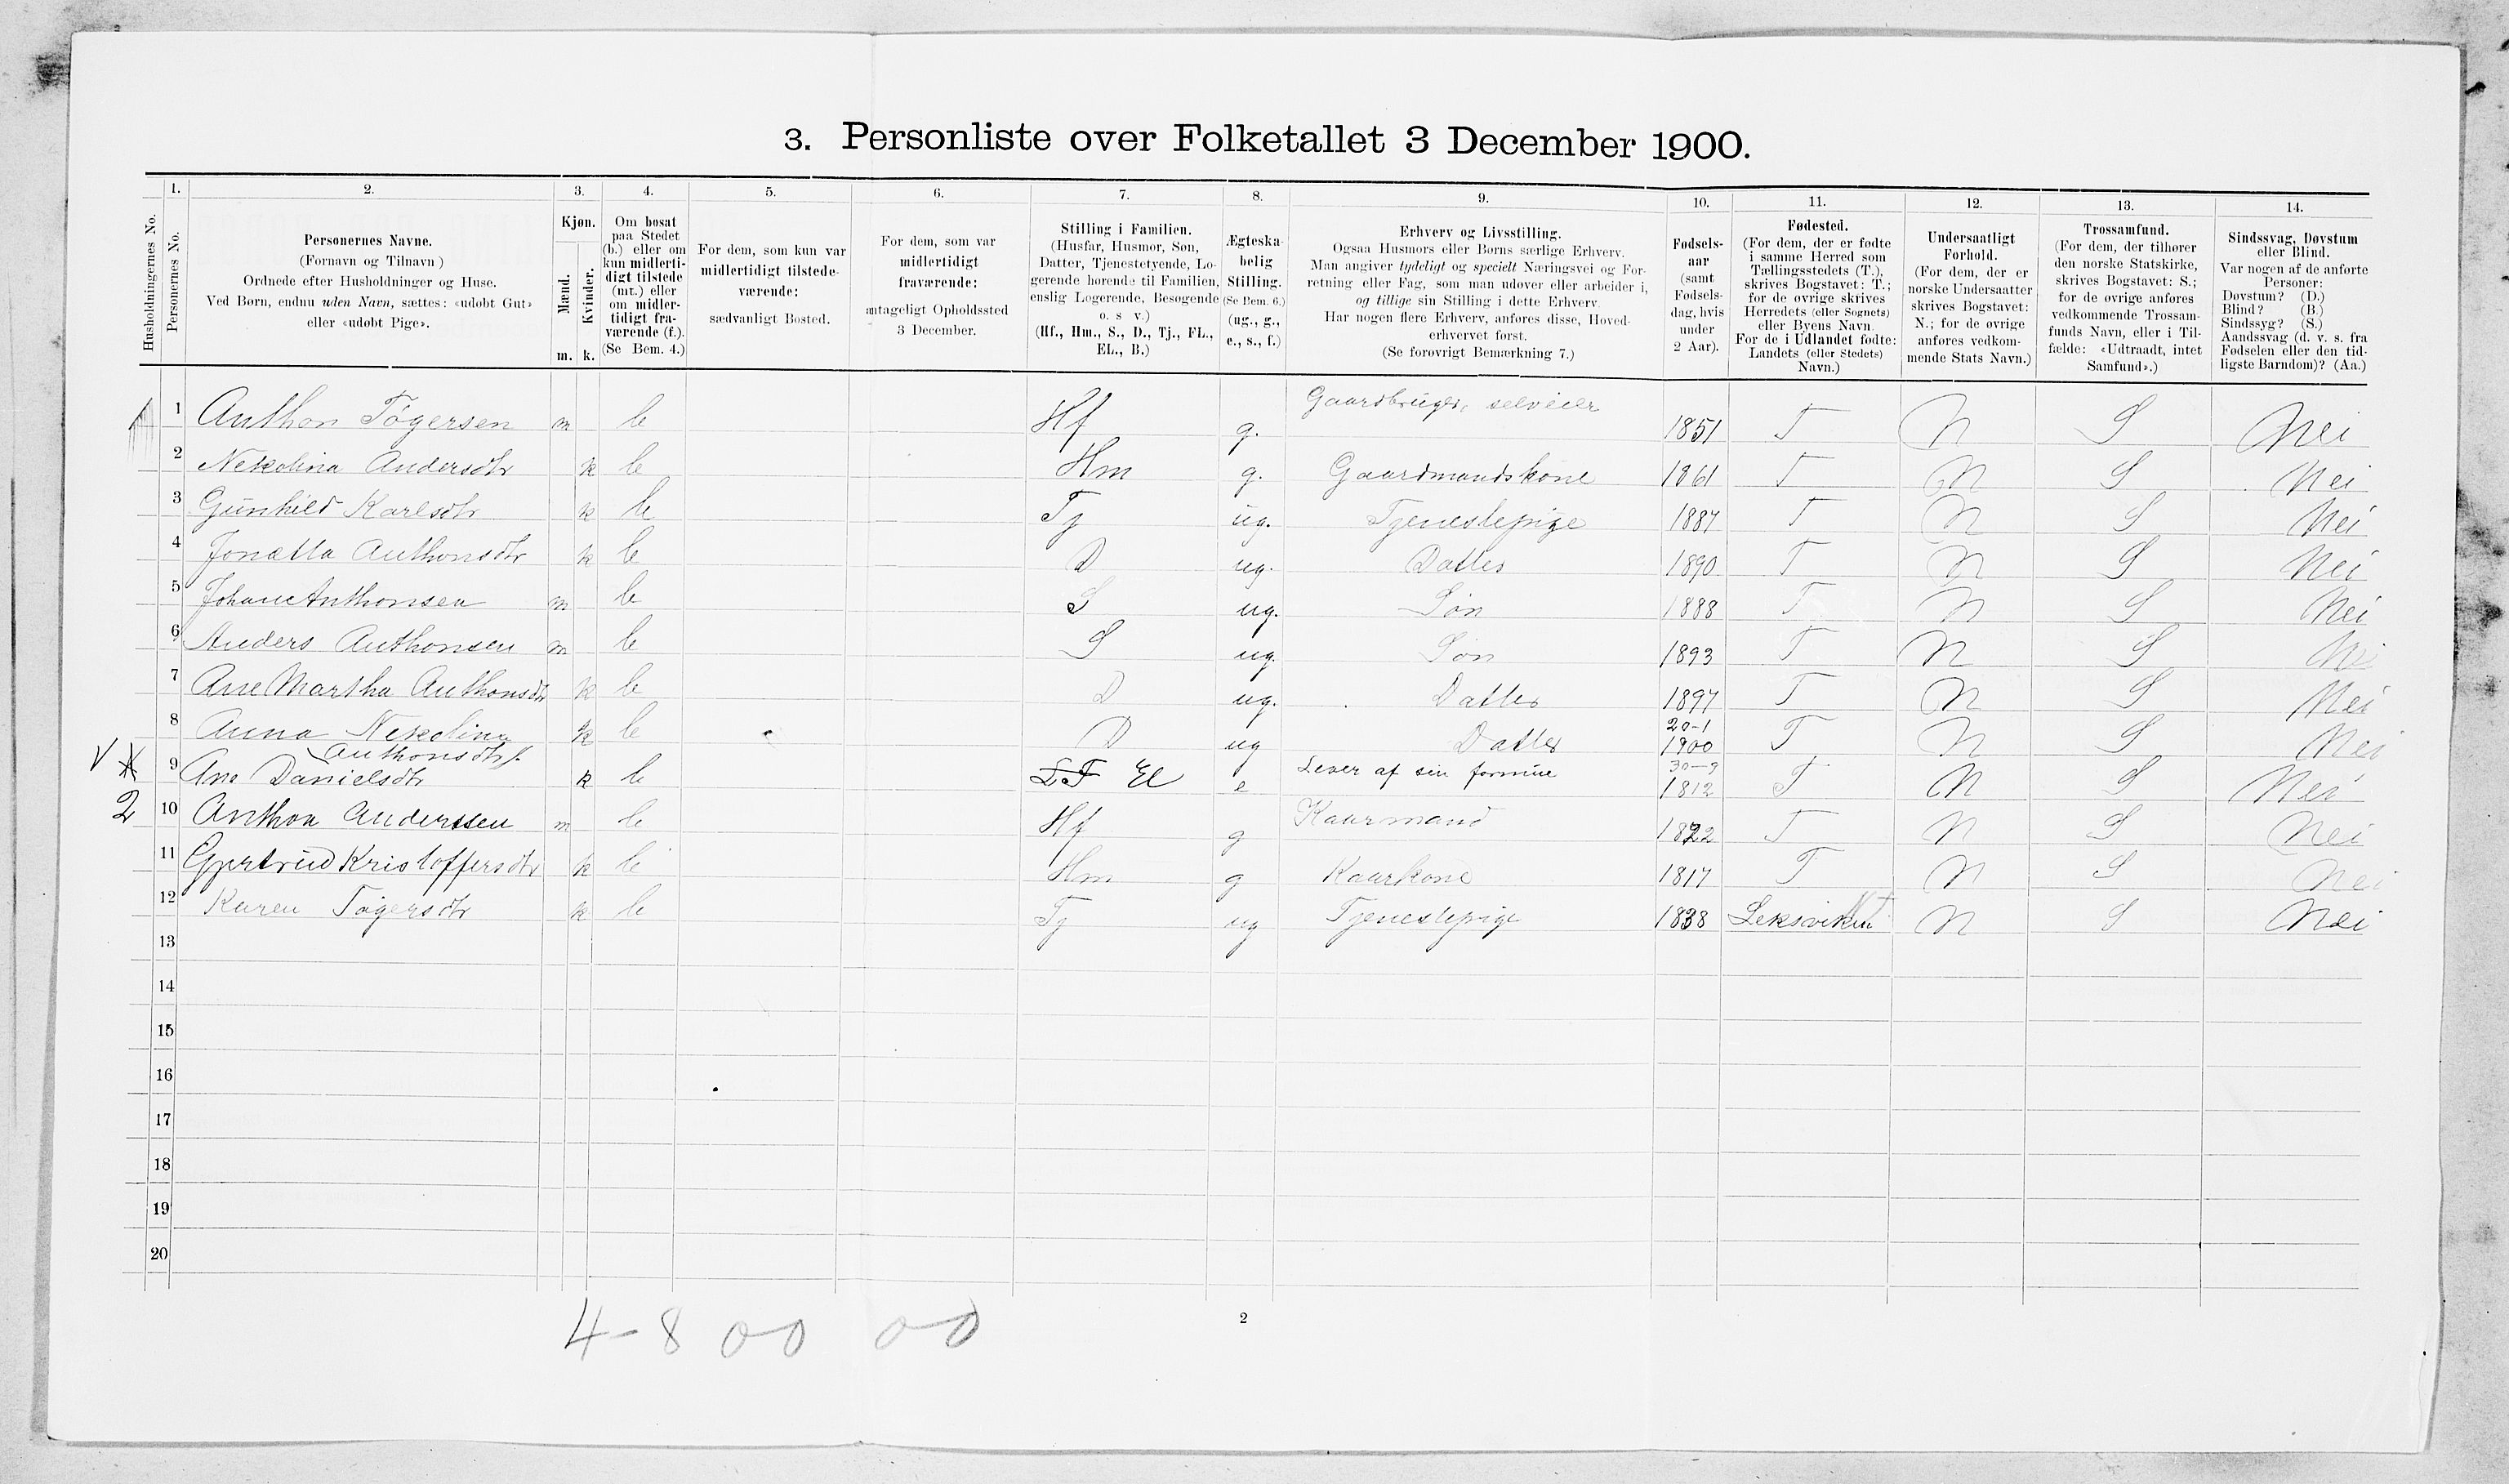 3. Personliste over Folketallet 3 December 1900.
1. 2. 3. 4. 5. 6. 7. 8. 9. 10. 11. 12. 13. 14.
Husholdningernes No.
Personernes No.
Personernes Navne.
(Fornavn og Tilnavn)
Ordnede efter Husholdninger og Huse.
Ved Børn, endnu uden Navn, sættes: «udøbt Gut»
eller «udøbt Pige».
Kjøn.
Mænd.
Kvinder.
m. k.
Om bosat
paa Stedet
(b.) eller om
kun midlerti-
digt tilstede
(mt.) eller
om midler-
tidigt fra-
værende (f.).
(Se Bem. 4.)
For dem, som kun var
midlertidigt tilstede-
værende:
sædvanligt Bosted.
For dem, som var
midlertidigt
fraværende:
antageligt Opholdssted
3 December.
Stilling i Familien.
(Husfar, Husmor, Søn,
Datter, Tjenestetyende, Lo-
gerende hørende til Familien,
enslig Logerende, Besøgende
o. s v.)
(Hf., Hm., S., D., Tj., FL.,
EL., B.)
Ægteska-
belig
Stilling.
(Se Bem. 6.)
(ug., g.,
e., s., f.)
Erhverv og Livsstilling.
Ogsaa Husmors eller Børns særlige Erhverv.
Man angiver tydeligt og specielt Næringsvei og For-
retning eller Fag, som man udøver eller arbeider i,
og tillige sin Stilling i dette Erhverv.
Har nogen flere Erhverv, anføres disse, Hoved-
erhvervet først.
(Se forøvrigt Bemærkning 7.)
Fødsels-
aar
(samt
Fødsels-
dag, hvis
under
2 Aar).
Fødested.
(For dem, der er fødte
i samme Herred som
Tællingsstedets (T.),
skrives Bogstavet: T.;
for de øvrige skrives
Herredets (eller Sognets)
eller Byens Navn.
For de i Udlandet fødte:
Landets (eller Stedets)
Navn.)
Undersaatligt
Forhold.
(For dem, der er
norske Undersaatter
skrives Bogstavet:
N.; for de øvrige
anføres vedkom-
mende Stats Navn.)
Trossamfund.
(For dem, der tilhører
den norske Statskirke,
skrives Bogstavet: S.;
for de øvrige anføres
vedkommende Trossam-
funds Navn, eller i Til-
fælde: «Udtraadt, intet
Samfund».)
Sindssvag, Døvstum
eller Blind.
Var nogen af de anførte
Personer:
Døvstum? (D.)
Blind? (B.)
Sindssyg? (S.)
Aandssvag (d. v. s. fra
Fødselen eller den tid-
ligste Barndom)? (Aa.)
1 1 Anthon Tøgersen m b Hf g. Gaardbruger, selveier 1851 T N S Nei
2 Nekolina Andersdtr k b Hm g. Gaardmandskone 1861 T N S Nei
3 Gunhild Karlsdtr k b Tj ug. Tjenestepige 1887 T N S Nei
4 Jonætta Anthonsdtr k b D ug. Datter 1890 T N S Nei
5 Johan Anthonsen m b S ug. Søn 1888 T N S Nei
6 Anders Anthonsen m b S ug. Søn 1893 T N S Nei
7 Ane Martha Anthonsdtr k b D ug. Datter 1897 T N S Nei
8 Anna Nekolina Anthonsdtr k b D ug Datter 20-1 1900 T N S Nei
9 Ane Danielsdtr k b El e Lever af sin formue 30-9 1812 T N S Nei
2 10 Anthon Anderssen m b Hf g Kaarmand 1822 T N S Nei
11 Gjertrud Kristoffersdtr k b Hm g Kaarkone 1817 T N S Nei
12 Karen Tøgersdtr k b Tj ug Tjenestepige 1838 Leksviken N S Nei
13
14
15
16
17
18
19
20
4-8 0-0 0-0
2